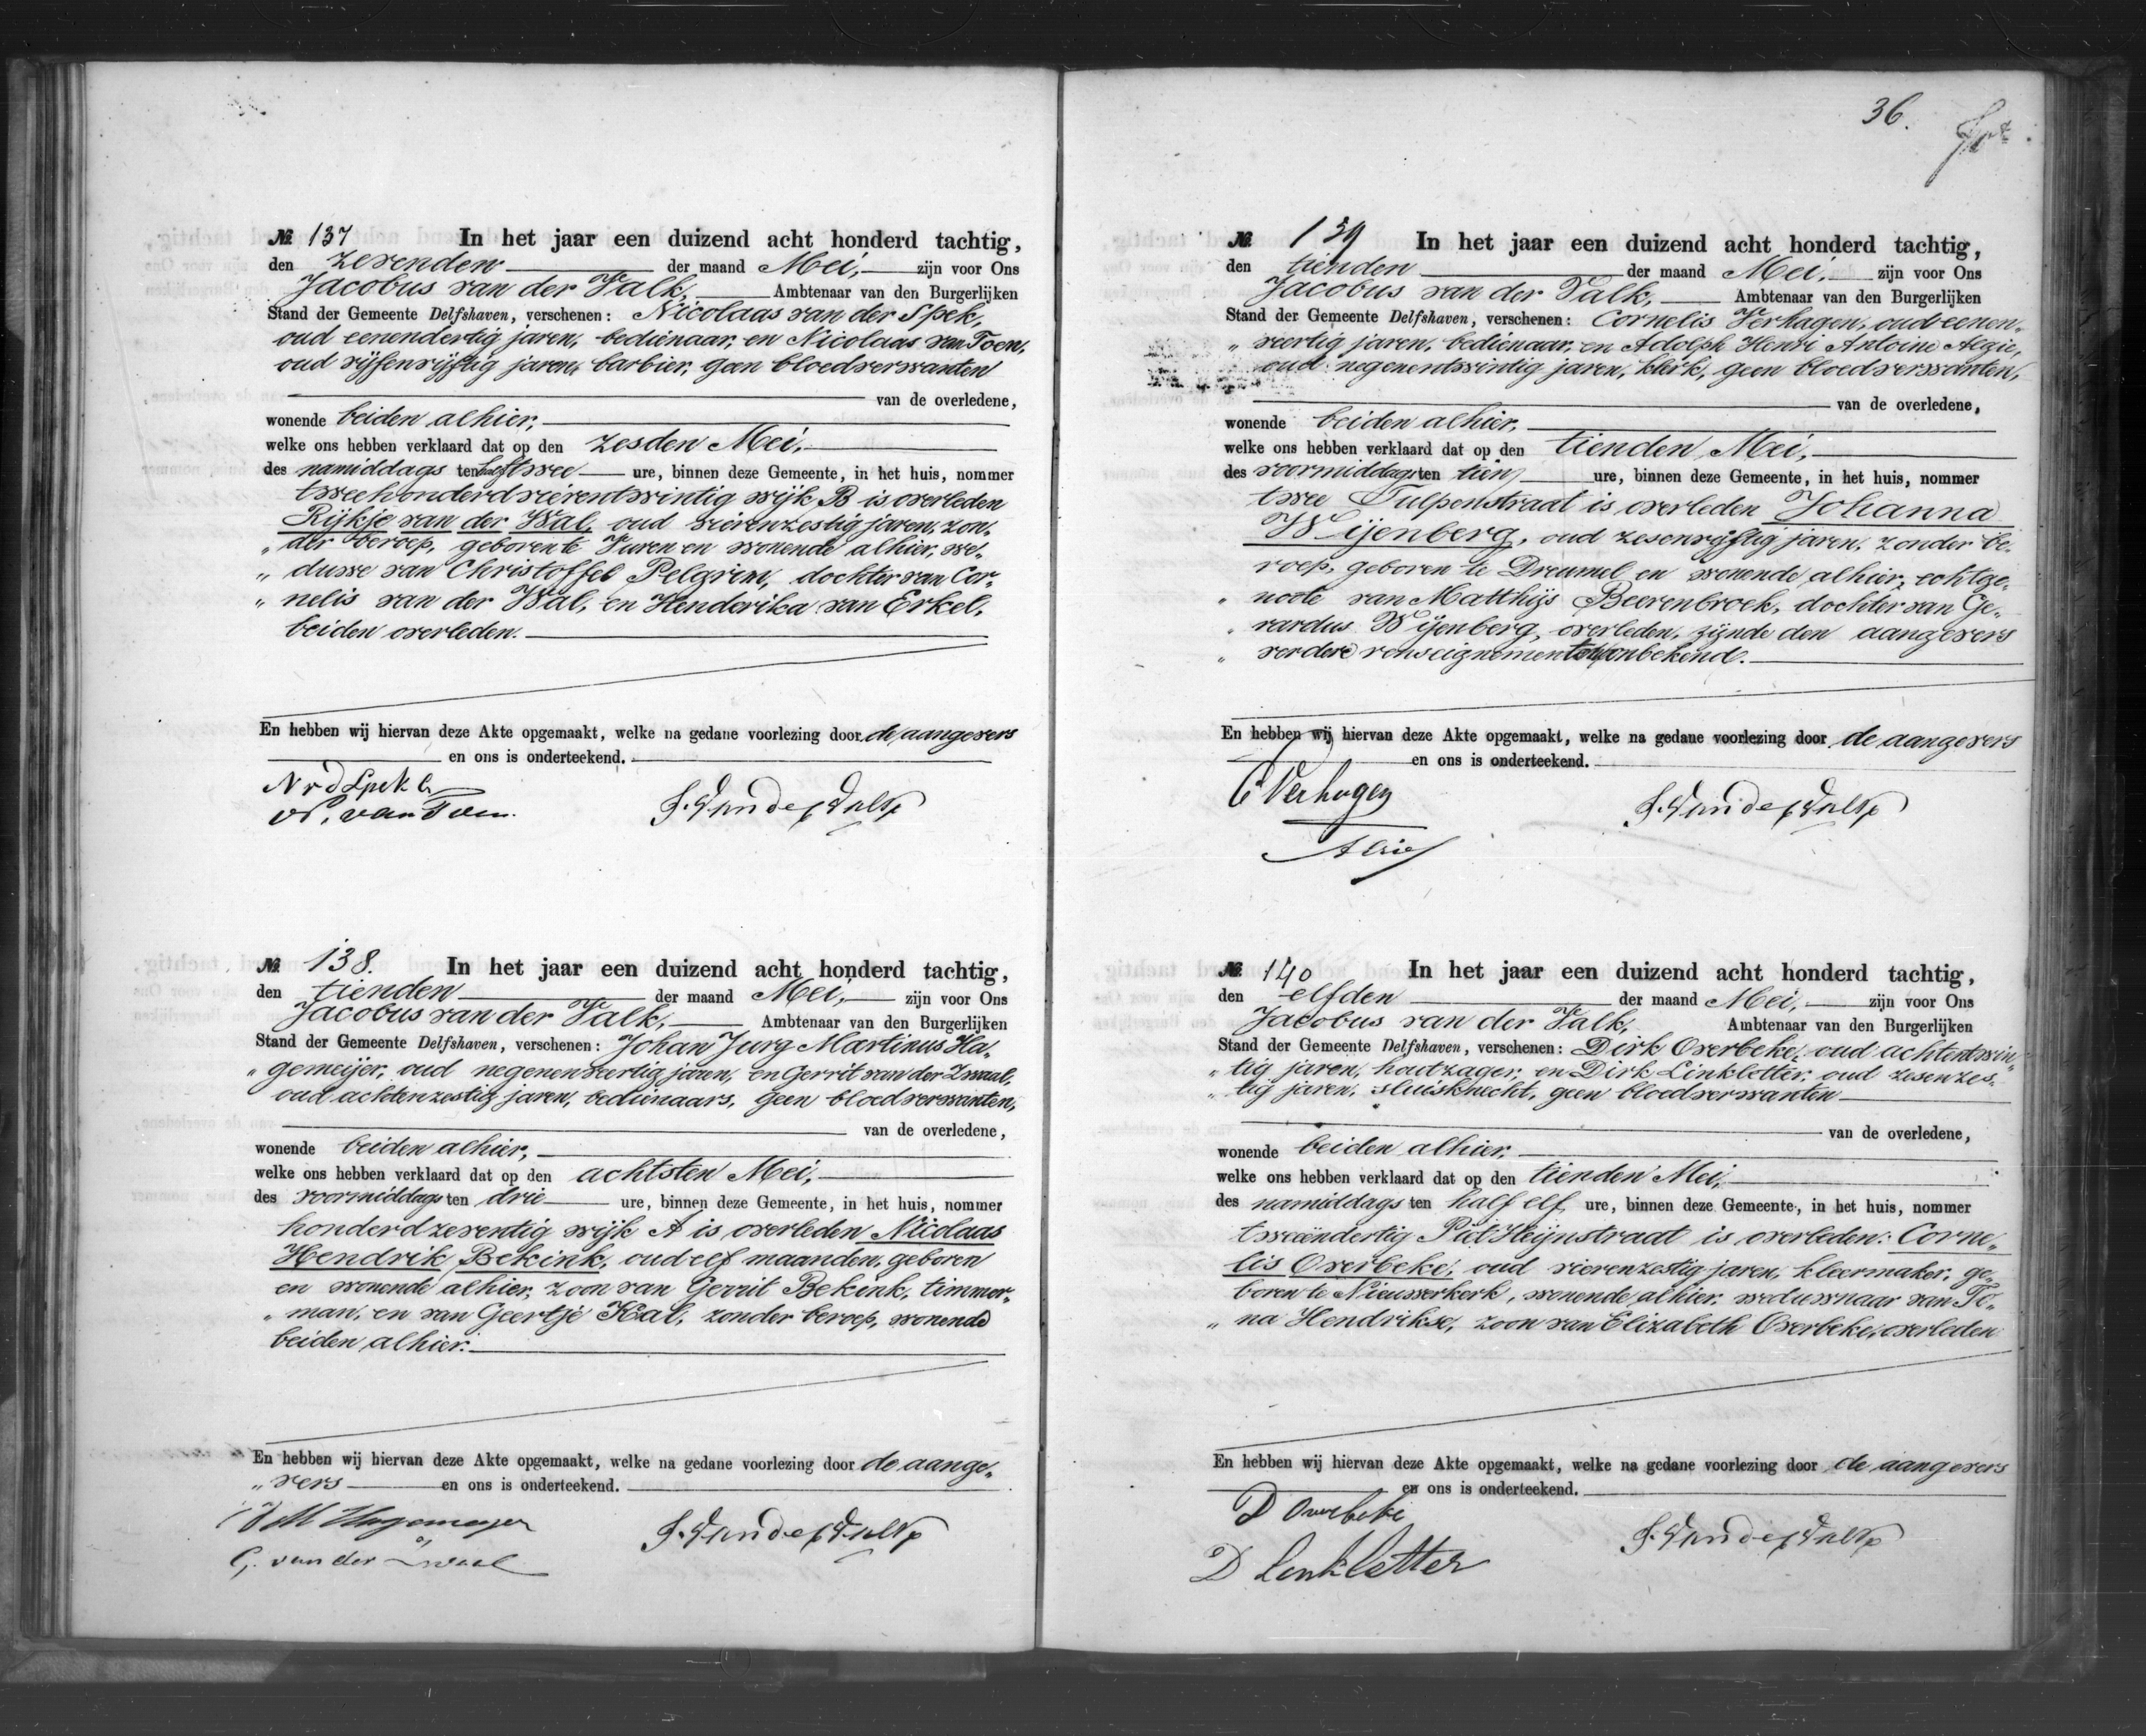 № 137 In het jaar een duizend acht honderd tachtig,
den zevenden der maand Mei, zijn voor Ons
Jacobus van der Valk, Ambtenaar van den Burgerlijken
Stand der Gemeente Delfshaven, verschenen: Nicolaas van der Spek,
oud eenendertig jaren, bedienaar, en Nicolaas van Toen,
oud vijfenvijftig jaren, barbier, geen bloedverwanten
van de overledene,
wonende beiden alhier,
welke ons hebben verklaard dat op den zesden Mei,
des namiddags ten half twee ure, binnen deze Gemeente, in het huis, nommer
tweehonderd vierentwintig wijk B is overleden
Rijkje van der Wal, oud vierenzestig jaren, zon-
„ der beroep, geboren te Vuren en wonende alhier, we-
„ duwe van Christoffel Pelgrim, dochter van Cor-
„ nelis van der Wal, en Henderika van Erkel,
beiden overleden.
En hebben wij hiervan deze Akte opgemaakt, welke na gedane voorlezing door de aangevers
en ons is onderteekend.
N v d Spek
N. van Toen.
J. van der Valk
№ 138. In het jaar een duizend acht honderd tachtig,
den tienden der maand Mei, zijn voor Ons
Jacobus van der Valk, Ambtenaar van den Burgerlijken
Stand der Gemeente Delfshaven, verschenen: Johan Jurg Martinus Ha-
„ gemeijer, oud negenenveertig jaren, en Gerrit van der Zwaal,
oud achtenzestig jaren, bedienaars, geen bloedverwanten,
van de overledene,
wonende beiden alhier,
welke ons hebben verklaard dat op den achtsten Mei,
des voormiddags ten drie ure, binnen deze Gemeente, in het huis, nommer
honderd zeventig wijk A is overleden Nicolaas
Hendrik Bekink, oud elf maanden, geboren
en wonende alhier, zoon van Gerrit Bekink, timmer-
„ man, en van Geertje Kal, zonder beroep, wonende
beiden alhier.
En hebben wij hiervan deze Akte opgemaakt, welke na gedane voorlezing door de aange-
„ vers en ons is onderteekend.
JJM Hagemeyer
G. van der Zwaal
J. van der Valk
36.
№ 139 In het jaar een duizend acht honderd tachtig,
den tienden der maand Mei, zijn voor Ons
Jacobus van der Valk, Ambtenaar van den Burgerlijken
Stand der Gemeente Delfshaven, verschenen: Cornelis Verhagen, oud eenen-
„ veertig jaren, bedienaar, en Adolph Henri Antoine Alzie,
oud negenentwintig jaren, klerk, geen bloedverwanten,
van de overledene,
wonende beiden alhier,
welke ons hebben verklaard dat op den tienden Mei,
des voormiddags ten tien ure, binnen deze Gemeente, in het huis, nommer
twee Tulpenstraat is overleden Johanna
Wijenberg, oud zesenvijftig jaren, zonder be-
roep, geboren te Dreumel en wonende alhier, echtge-
„ noote van Matthijs Beerenbroek, dochter van Ge-
„ rardus Wijenberg, overleden, zijnde den aangevers
„ verdere renseignementen onbekend.
En hebben wij hiervan deze Akte opgemaakt, welke na gedane voorlezing door de aangevers
en ons is onderteekend.
C Verhagen
Alzie
J. van der Valk
№ 140 In het jaar een duizend acht honderd tachtig,
den elfden der maand Mei, zijn voor Ons
Jacobus van der Valk, Ambtenaar van den Burgerlijken
Stand der Gemeente Delfshaven, verschenen: Dirk Overbeke, oud achtentwin-
„ tig jaren, houtzager, en Dirk Linkletter, oud zesenzes-
„ tig jaren, sluisknecht, geen bloedverwanten
van de overledene,
wonende beiden alhier,
welke ons hebben verklaard dat op den tienden Mei,
des namiddags ten half elf ure, binnen deze Gemeente, in het huis, nommer
tweeëndertig Piet Heijnstraat is overleden: Corne-
lis Overbeke, oud vierenzestig jaren, kleermaker, ge-
boren te Nieuwerkerk, wonende alhier, weduwnaar van Te-
„ na Hendrikse, zoon van Elizabeth Overbeke, overleden
En hebben wij hiervan deze Akte opgemaakt, welke na gedane voorlezing door de aangevers
en ons is onderteekend.
D Overbeke
D Linkletter
J. van der Valk